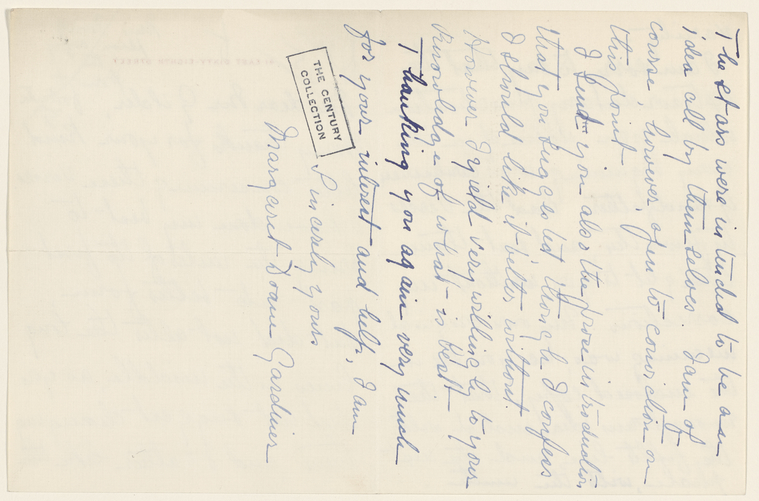 The stars were intended to be an
idea all by themselves. I am of
course, however, open to conviction on
this point.
I send you also the prose introduction
that you suggested, though I confess
I should like it better without.
However I yield very willingly to your
knowledge of what is best.
Thanking you again very much
for your interest and help, I am
Sincerely yours
Margaret Doane Gardiner
THE CENTURY
COLLECTION